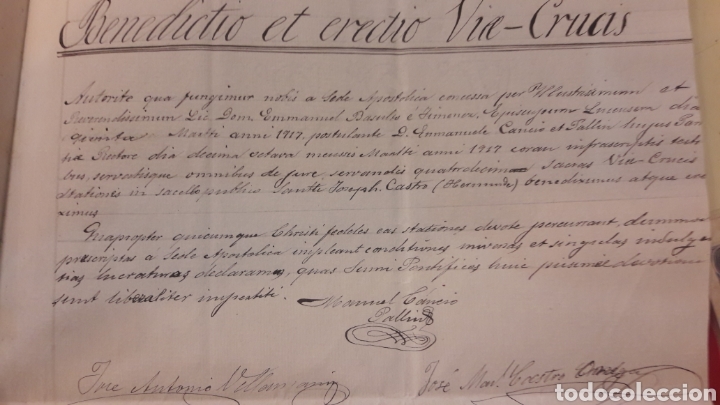 Benedictio et erectio Viæ-Crucis
Autorite qua fungimur nobis a Sede Apostolica concessa per Illustrissimum et
Reverendissimum Lic. Dom. Emmanuel Basulto e Jimenez, Episcopum Lucensem dia
Martii anni 1917, postulante D. Emmanuele Cancio et Pallin hujus Par
Rectore dia decima octava mensis Martii anni 1917 coram infrascriptis testi
bus, servatisque omnibus de jure servandis quatordecim sacras Viæ-Crucis
stationes in sacello publico Sancti Joseph. Castro benediximus atque ere
ximus
Quapropter quicumque Christi fideles eas stationes devote percurrant, dummodo
prescriptas a Sede Apostolica impleant conditiones universas et singulas indulgen
tias lucraturos declaramos, quas Sumi Pontifices huic devotioni
sunt liberaliter impertiti.
Manuel Cancio
Pallin
Jose Antonio Villamarin
José Marª Castro
todocoleccion